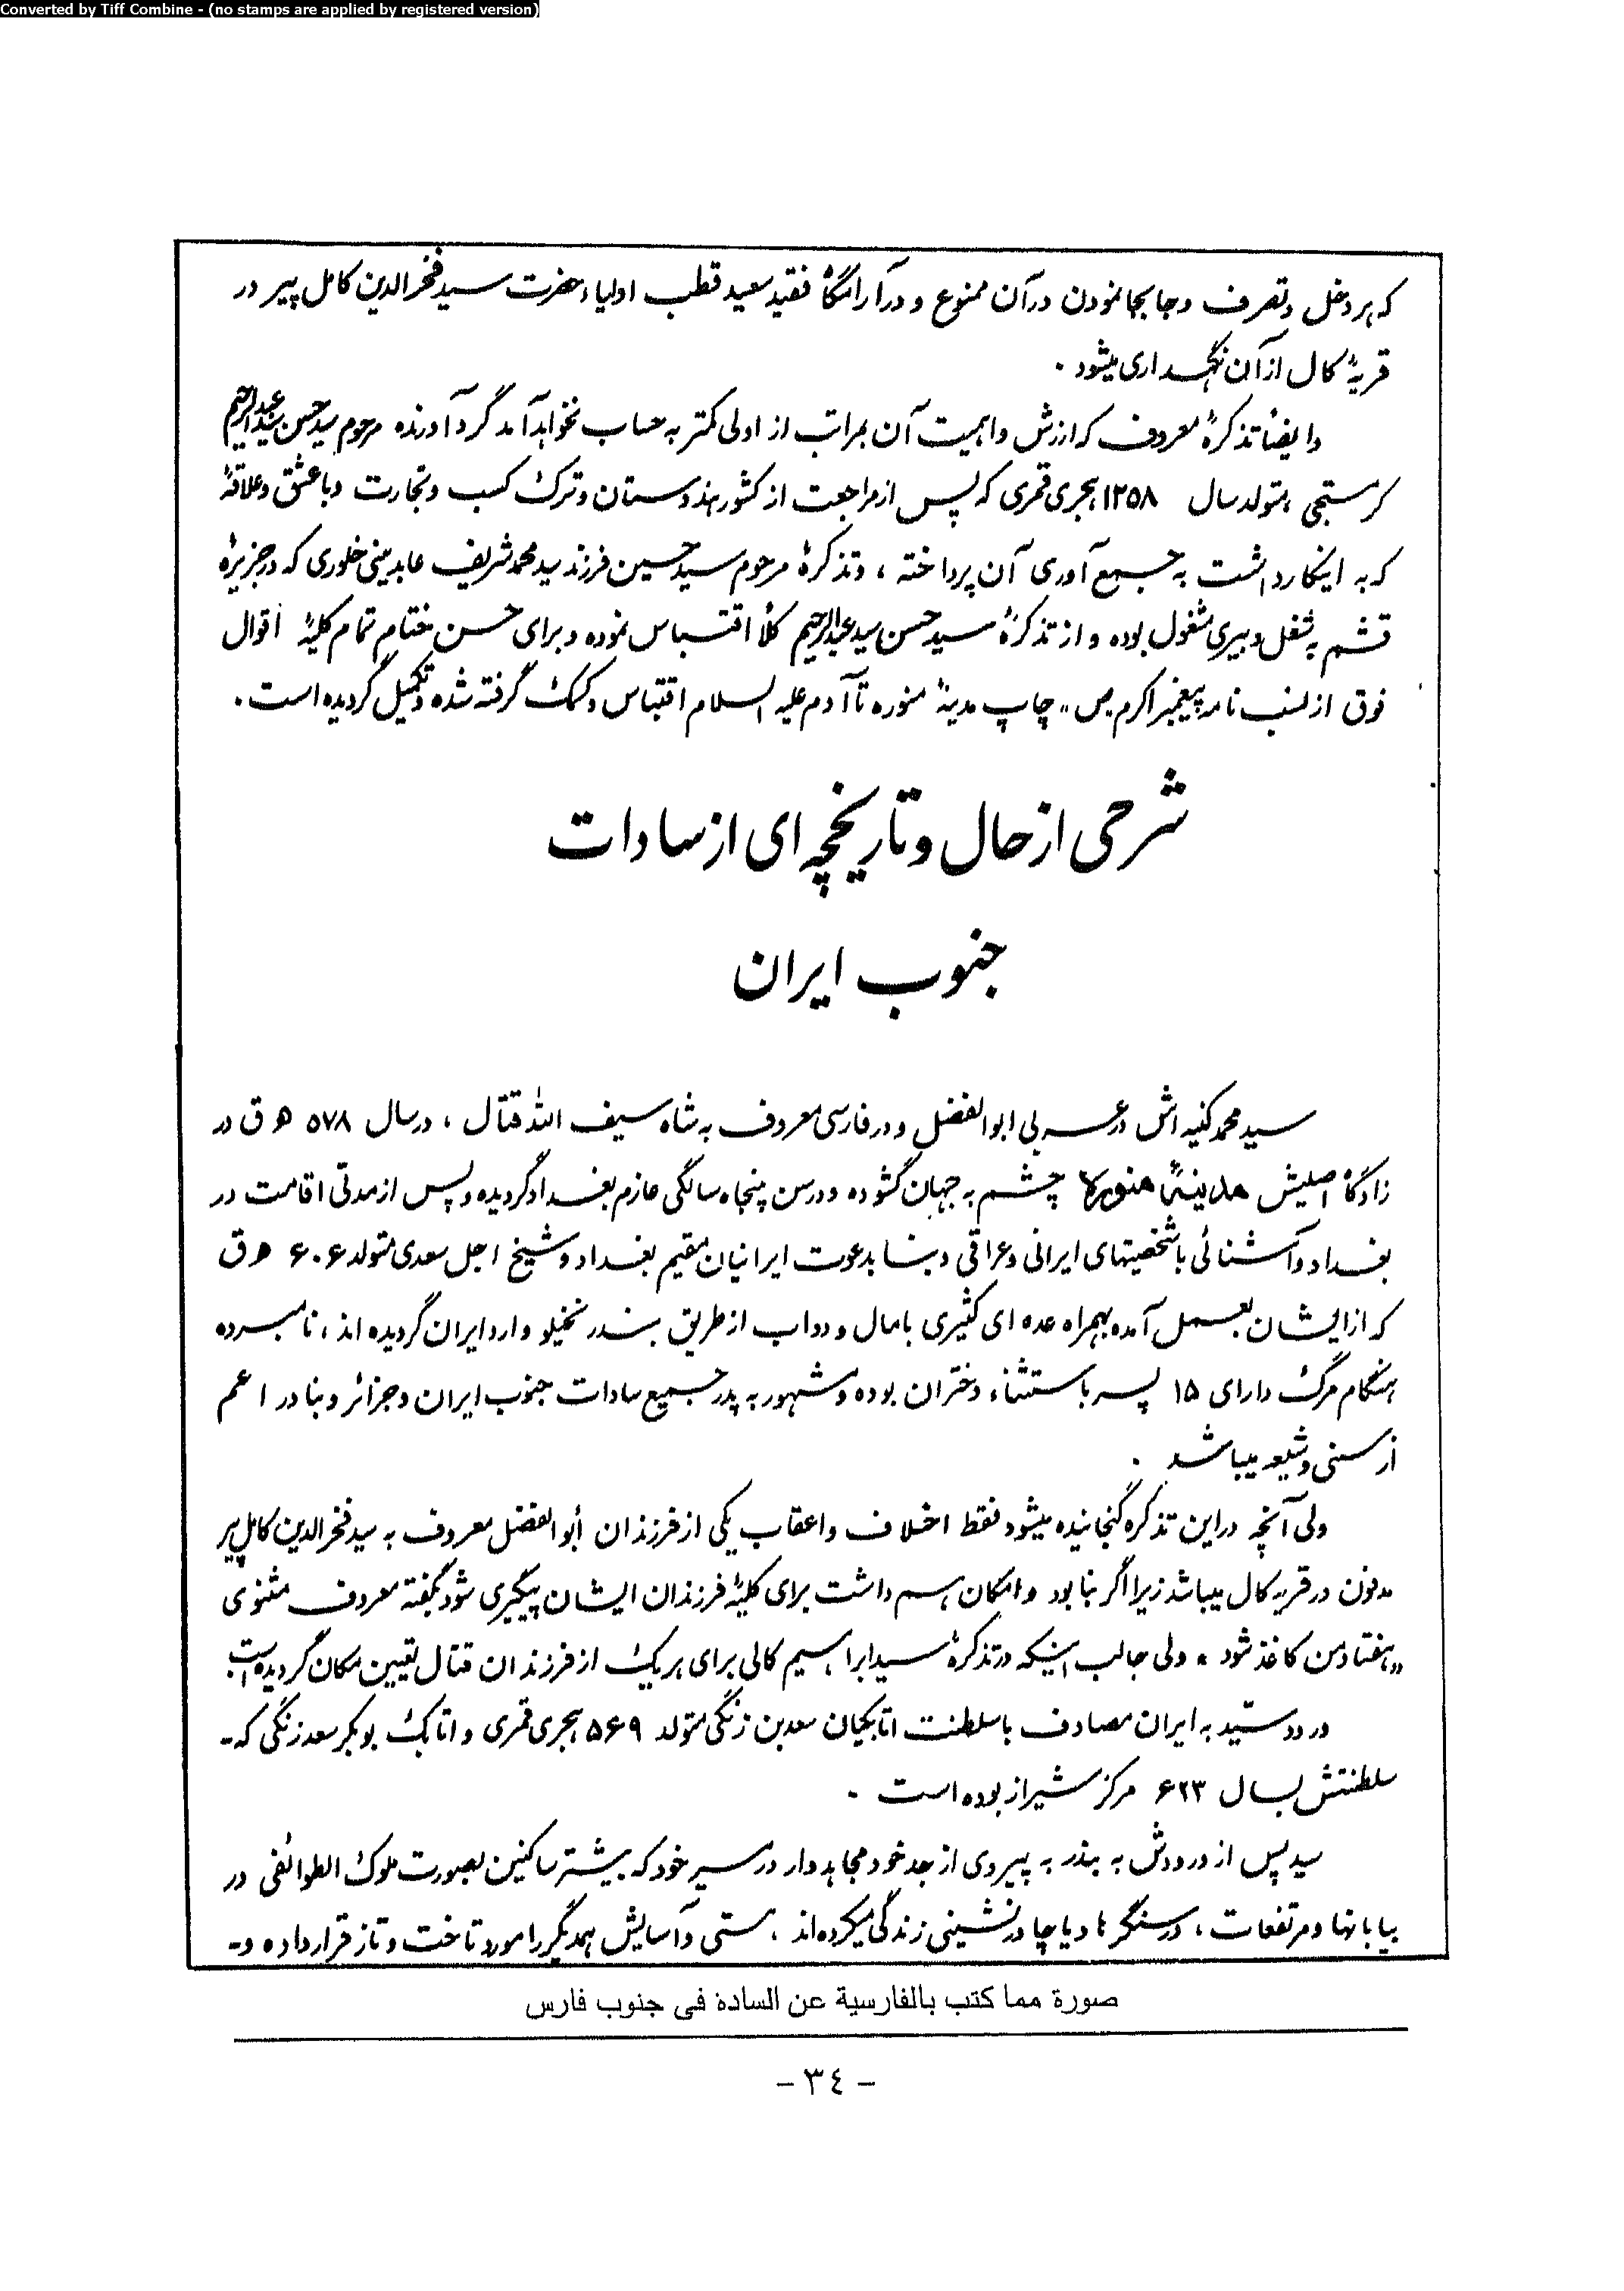 Converted by Tiff Combine - (no stamps are applied by registered version)
که هر دخل و تصرف و جابجا نمودن در آن ممنوع و در آرامگاه فقید سعید قطب اولیاء حضرت سید فخرالدین کامل پیر در
قریهٔ کال از آن نگهداری میشود .
و ایضاً تذکرهٔ معروف که ارزش و اهمیت آن بمراتب از اولی کمتر به حساب نخواهد آمد گرد آورنده مرحوم سید حسن سید عبدالرحیم
متولد سال ۱۲۵۸ هجری قمری که پس از مراجعت از کشور هندوستان و ترک کسب و تجارت و با عشق و علاقهٔ
که به اینکار داشت به جمع آوری آن پرداخته ، و تذکرهٔ مرحوم سید حسین فرزند سید محمد شریف عابدینی خلوری که در جزیرهٔ
قشم به شغل دبیری مشغول بوده و از تذکرهٔ سید حسن سید عبدالرحیم کلاً اقتباس نموده و برای حسن ختام تمام کلیهٔ اقوال
فوق از نسب نامه پیغمبر اکرم ص ،، چاپ مدینهٔ منوره تا آدم علیه السلام اقتباس و کمک گرفته شده و تکمیل گردیده است .
شرحی از حال و تاریخچه ای از سادات
جنوب ایران
سید محمد کنیه اش در عربی ابوالفضل و در فارسی معروف به شاه سیف الله قتال ، در سال ۵۷۸ ه ق در
زادگاه اصلیش مدینهٔ منوره چشم به جهان گشوده و در سن پنجاه سالگی عازم بغداد گردیده و پس از مدتی اقامت در
بغداد و آشنائی با شخصیتهای ایرانی و عراقی و بنا بدعوت ایرانیان مقیم بغداد و شیخ اجل سعدی متولد ۶۰۶ ه ق
که از ایشان بعمل آمده بهمراه عده ای کثیری با مال و دواب از طریق بندر نخیلو وارد ایران گردیده اند ، نامبرده
هنگام مرگ دارای ۱۵ پسر با ستثناء دختران بوده و مشهور به پدر جمیع سادات جنوب ایران و جزائر و بنادر اعم
از سنی و شیعه میباشد .
ولی آنچه در این تذکره گنجانیده میشود فقط اخلاف و اعقاب یکی از فرزندان أبوالفضل معروف به سید فخرالدین کامل پیر
مدفون در قریه کال میباشد زیرا اگر بنا بود و امکان هم داشت برای کلیهٔ فرزندان ایشان پیگیری شود بگفته معروف مثنوی
،، هفتاد من کاغذ شود ،، ولی جالب اینکه در تذکرهٔ سید ابراهیم کالی برای هر یک از فرزندان قتال تعیین مکان گردیده است
ورود سید به ایران مصادف با سلطنت اتابکیان سعد بن زنگی متولد ۵۶۹ هجری قمری و اتابک بوبکر سعد زنگی که -
سلطنتش بسال ۶۲۳ مرکز شیراز بوده است .
سید پس از ورودش به بندر به پیروی از جد خود مجاهد وار در مسیر خود که بیشتر ساکنین بصورت ملوک الطوائفی در
بیابانها و مرتفعات ، در سنگرها و یا چادر نشینی زندگی میکرده اند ، ستی و آسایش همدیگر را مورد تاخت و تاز قرار داده و -
صورة مما كتب بالفارسية عن السادة في جنوب فارس
- ٣٤ -